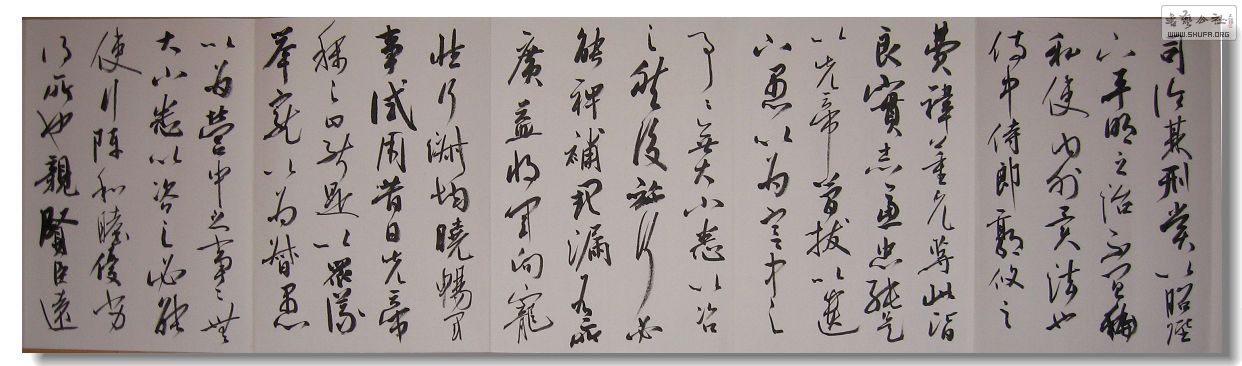 司論其刑賞以昭陛
下平明之治不宜偏
私使內外異法也
侍中侍郎郭攸之
費禕董允等此皆
良實志慮忠純是
以先帝簡拔以遺
下愚以為宮中之
事〻無大小悉以咨
之然後施行必
能裨補闕漏有所
廣益將軍向寵
性行淑均曉暢軍
事試用昔日先帝
稱之曰能是以眾議
舉寵以為督愚
以為營中之事〻無
大小悉以咨之必能
使行陣和睦優劣
得所也親賢臣遠
書藝公社
WWW.SHUFA.ORG